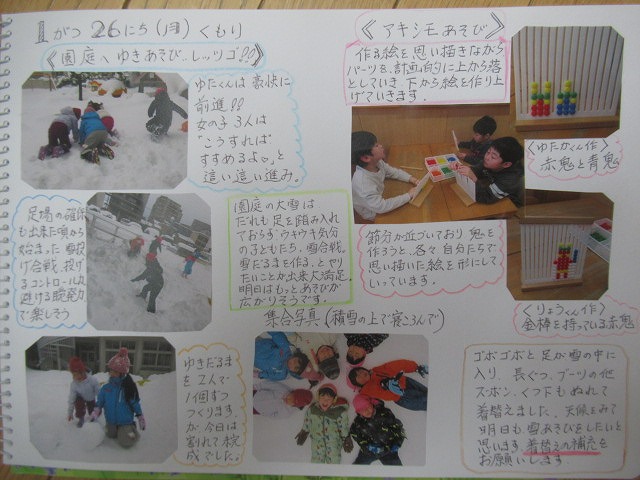 1がつ 26にち(月) くもり
《園庭へゆきあそび、レッツゴ!!》
ゆたくんは豪快に
前進!!
女の子3人は
“こうすれば
すすめるよ。”と
這い這い進み。
足場の確保
も出来た頃から
始まった雪投
げ合戦。投げ
るコントロールは
避ける瞬発力
で楽しそう
園庭の大雪は
だれも足を踏み入れ
ておらず、ウキウキ気分
の子どもたち。雪合戦、
雪だるまを作る。とやり
たいことが出来大満足。
明日はもっとあそびが
広がりそうです。
ゆきだるま
を2人で
1個ずつ
つくります。
が今日は
割れて未完
成でした。
集合写真(積雪の上で寝ころんで)
《アキシモあそび》
作る絵を思い描きながら
パーツを、計画的に上から落
としていき下から絵を作り上
げていきます。
<ゆたかくん作>
赤鬼と青鬼
節分が近づいており鬼を
作ろうと、各々自分たちで
思い描いた絵を形にして
いっています。
<りょうくん作>
金棒を持っている赤鬼
ズボズボと足が雪の中に
入り、長ぐつ、ブーツの他
ズボン、くつ下もぬれて
着替えました。天候をみて
明日も雪あそびをしたいと
思います。着替えの補充を
お願いします。